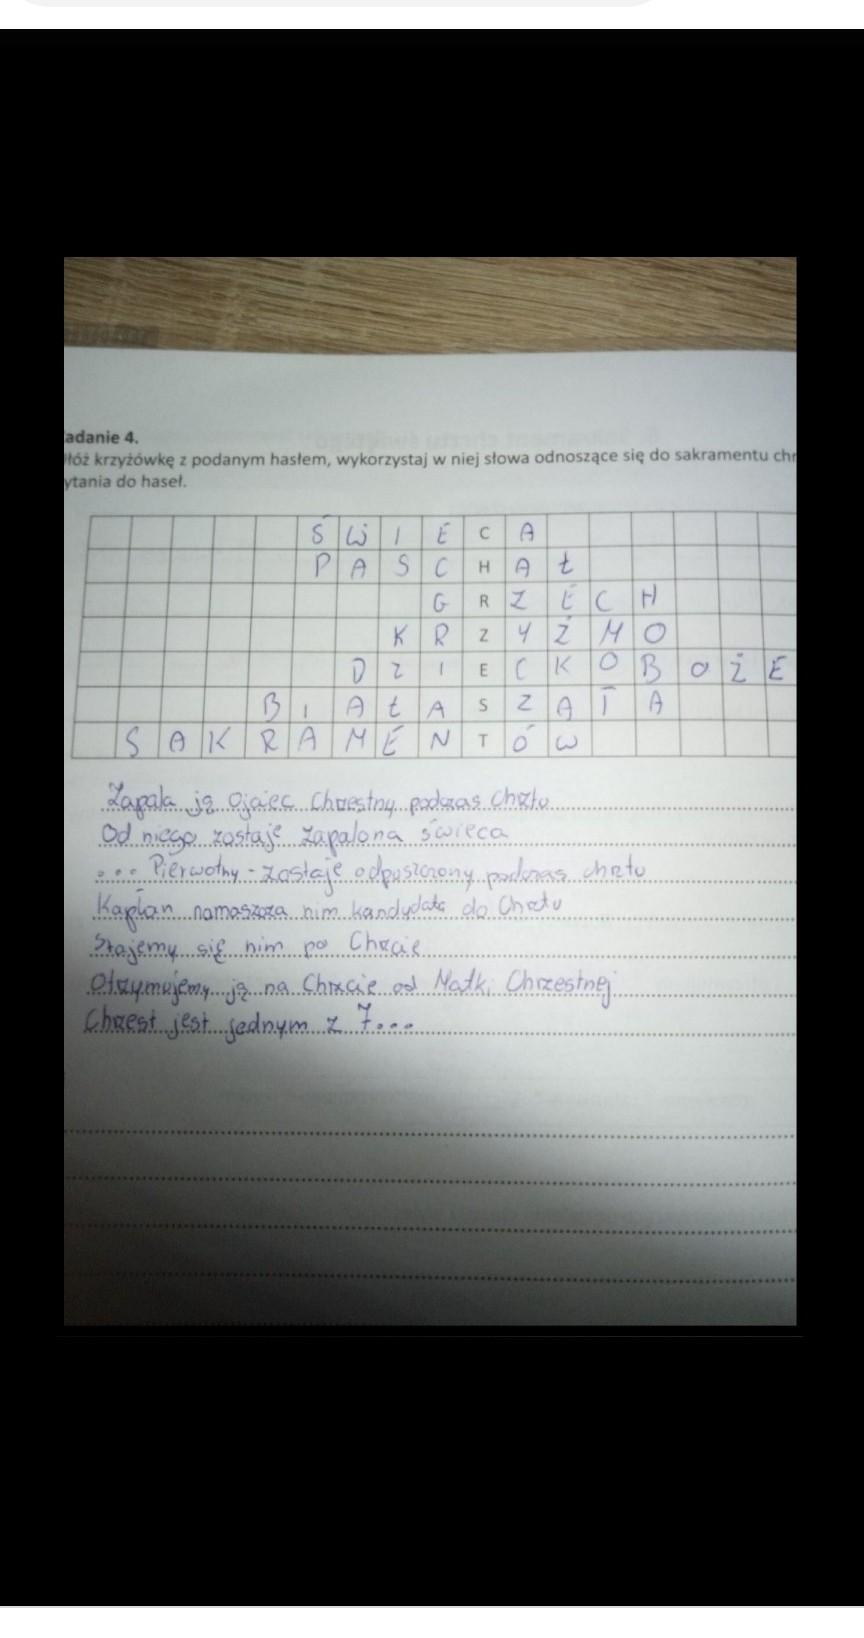 adanie 4.
łóż krzyżówkę z podanym hasłem, wykorzystaj w niej słowa odnoszące się do sakramentu chr
ytania do haseł.
Ś W I E C A
P A S C H A Ł
G R Z E C H
K R Z Y Ż M O
D Z I E C K O B O Ż E
B I A Ł A S Z A T A
S A K R A M E N T Ó W
Zapala ją Ojciec Chrzestny podczas Chrztu
Od niego zostaje zapalona świeca
... Pierwotny - zostaje odpuszczony podczas chrztu
Kapłan namaszcza nim kandydata do Chrztu
Stajemy się nim po Chrzcie
Otrzymujemy ją na Chrzcie od Matki Chrzestnej
Chrzest jest jednym z 7...